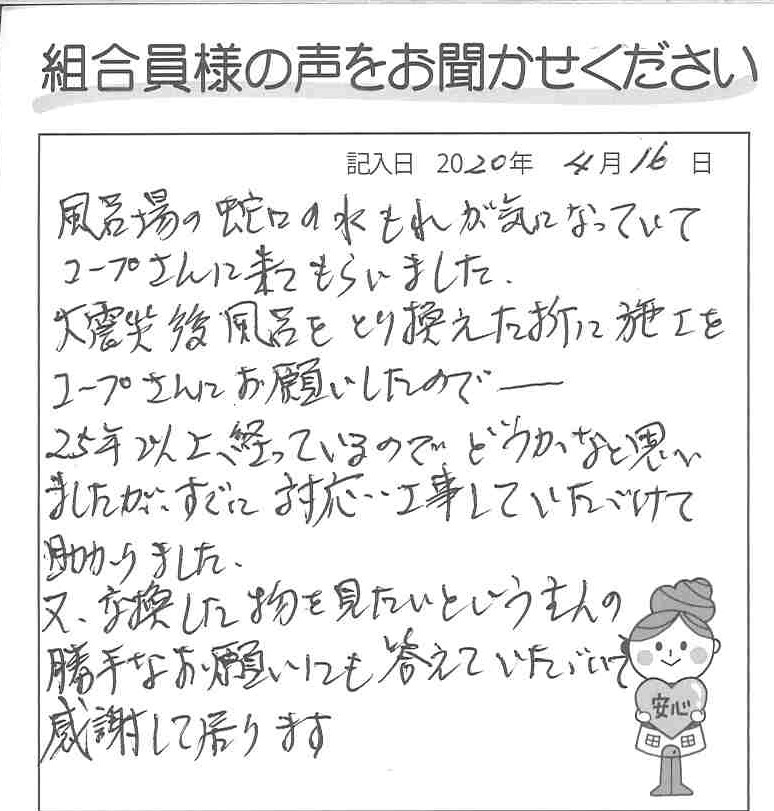 組合員様の声をお聞かせください
記入日 2020年 4月16日
風呂場の蛇口の水もれが気になっていて
コープさんに来てもらいました.
大震災後風呂をとり換えた折に施工を
コープさんにお願いしたので―
25年以上経っているのでどうかなと思い
ましたが、すぐに対応‥工事していただけて
助かりました、
又、交換した物を見たいという主人の
勝手なお願いにも答えていただいて
感謝して居ります
安心